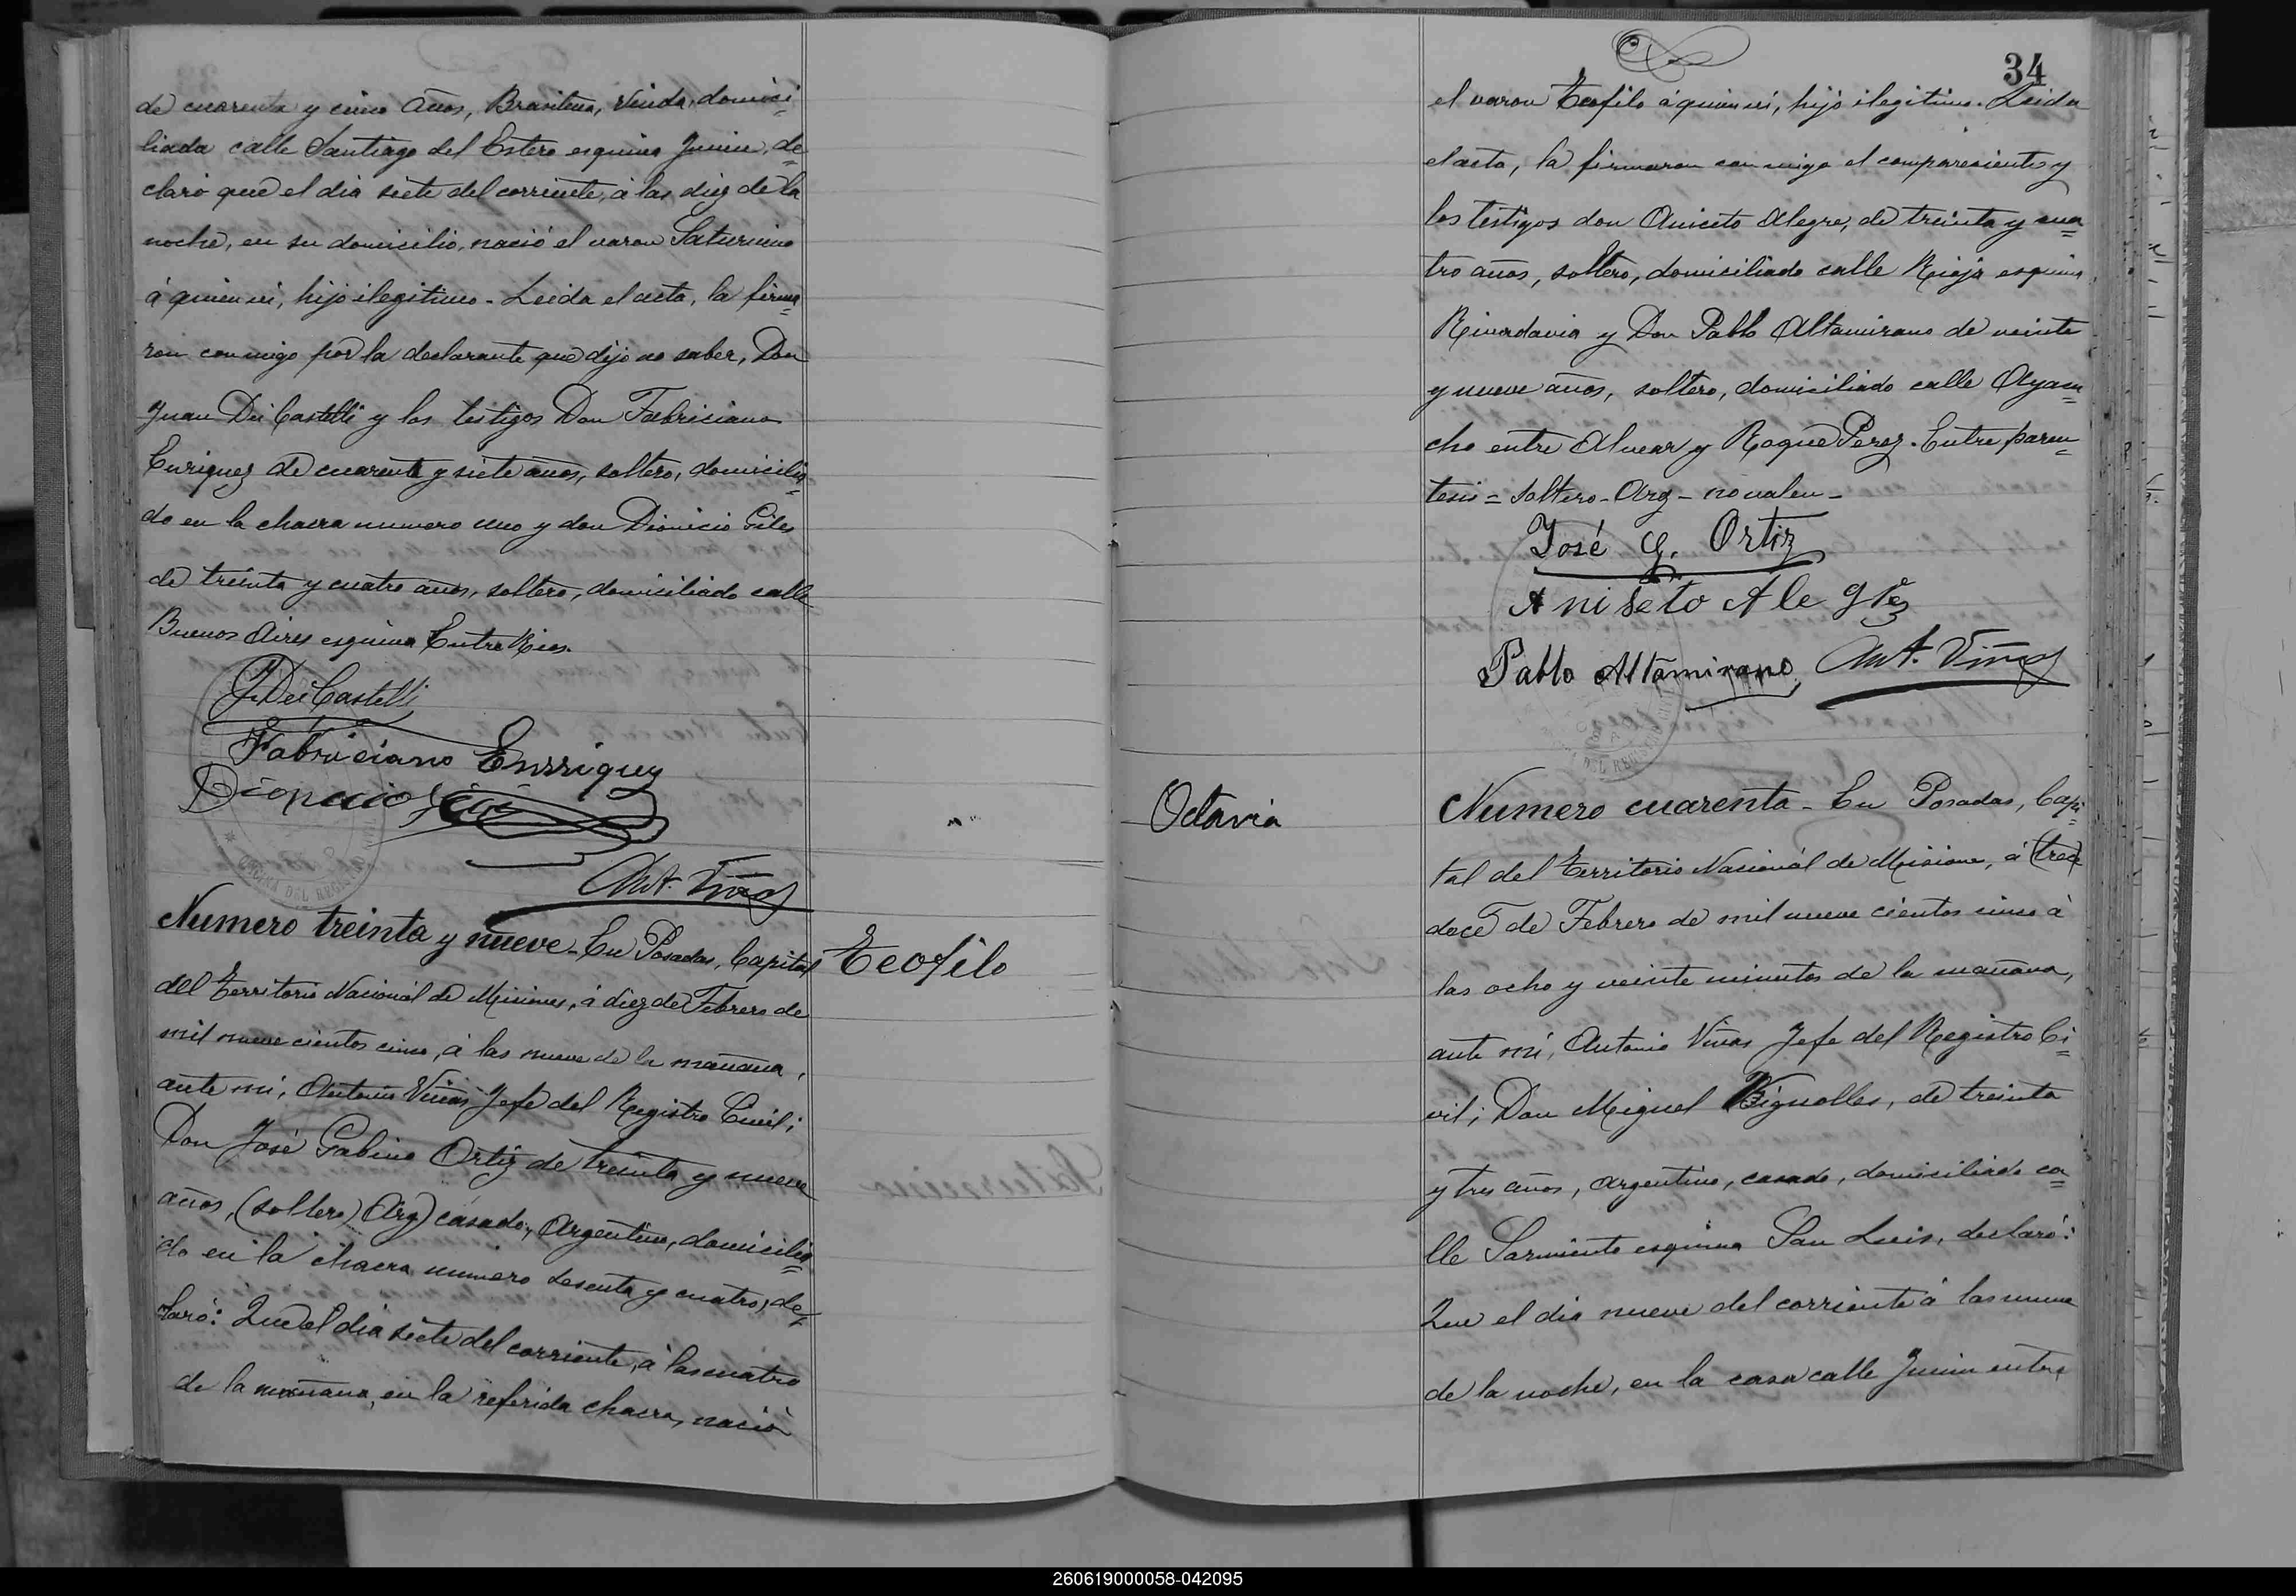 de cuarenta y cinco años, Brasilera, Viuda, domici=
liada calle Santiago del Estero esquina Junin, de=
claró que el dia siete del corriente, á las diez de la
noche, en su domicilio, nació el varon Saturnino
á quien ví, hijo ilegitimo - Leida el acta, la firma=
ron conmigo por la declarante que dijo no saber, Don
Juan Dei Castelli y los testigos Don Fabriciano
Enriquez de cuarenta y siete años, soltero, domicilia=
do en la chacra numero uno y don Dionicio Giles
de treinta y cuatro años, soltero, domiciliado calle
Buenos Aires esquina Entre Rios.
J. Dei Castelli
Fabriciano Enrriquez
Dionicio
Ant. Viñas
Numero treinta y nueve - En Posadas, Capital
del Territorio Nacional de Misiones, á diez de Febrero de
mil nueve cientos cinco, á las nueve de la mañana,
ante mí, Antonio Viñas Jefe del Registro Civil;
Don José Gabino Ortiz de treinta y nueve
años, (soltero) Arg) casado, Argentino, domicilia=
do en la chacra numero sesenta y cuatro, de=
claró: Que el dia siete del corriente, á las cuatro
de la mañana, en la referida chacra, nació
Teofilo
34
el varon Teofilo á quien ví, hijo ilegitimo. Leida
el acta, la firmaron conmigo el compareciente y
los testigos don Aniceto Alegre, de treinta y cua=
tro años, soltero, domiciliado calle Rioja esquina
Rivadavia y Don Pablo Altamirano de veinte
y nueve años, soltero, domiciliado calle Ayacu=
cho entre Alvear y Roque Perez. Entre paren=
tesis = soltero - Arg - no valen -
José G. Ortiz
Aniseto Alegre
Pablo Altamirano Ant. Viñas
Octavia
Numero cuarenta - En Posadas, Capi=
tal del Territorio Nacional de Misiones, á (trece
doce de Febrero de mil nueve cientos cinco á
las ocho y veinte minutos de la mañana,
ante mí, Antonio Viñas Jefe del Registro Ci=
vil; Don Miguel Vignolles, de treinta
y tres años, argentino, casado, domiciliado ca=
lle Sarmiento esquina San Luis, declaró:
Que el dia nueve del corriente á las nueve
de la noche, en la casa calle Junin entre
260619000058-042095